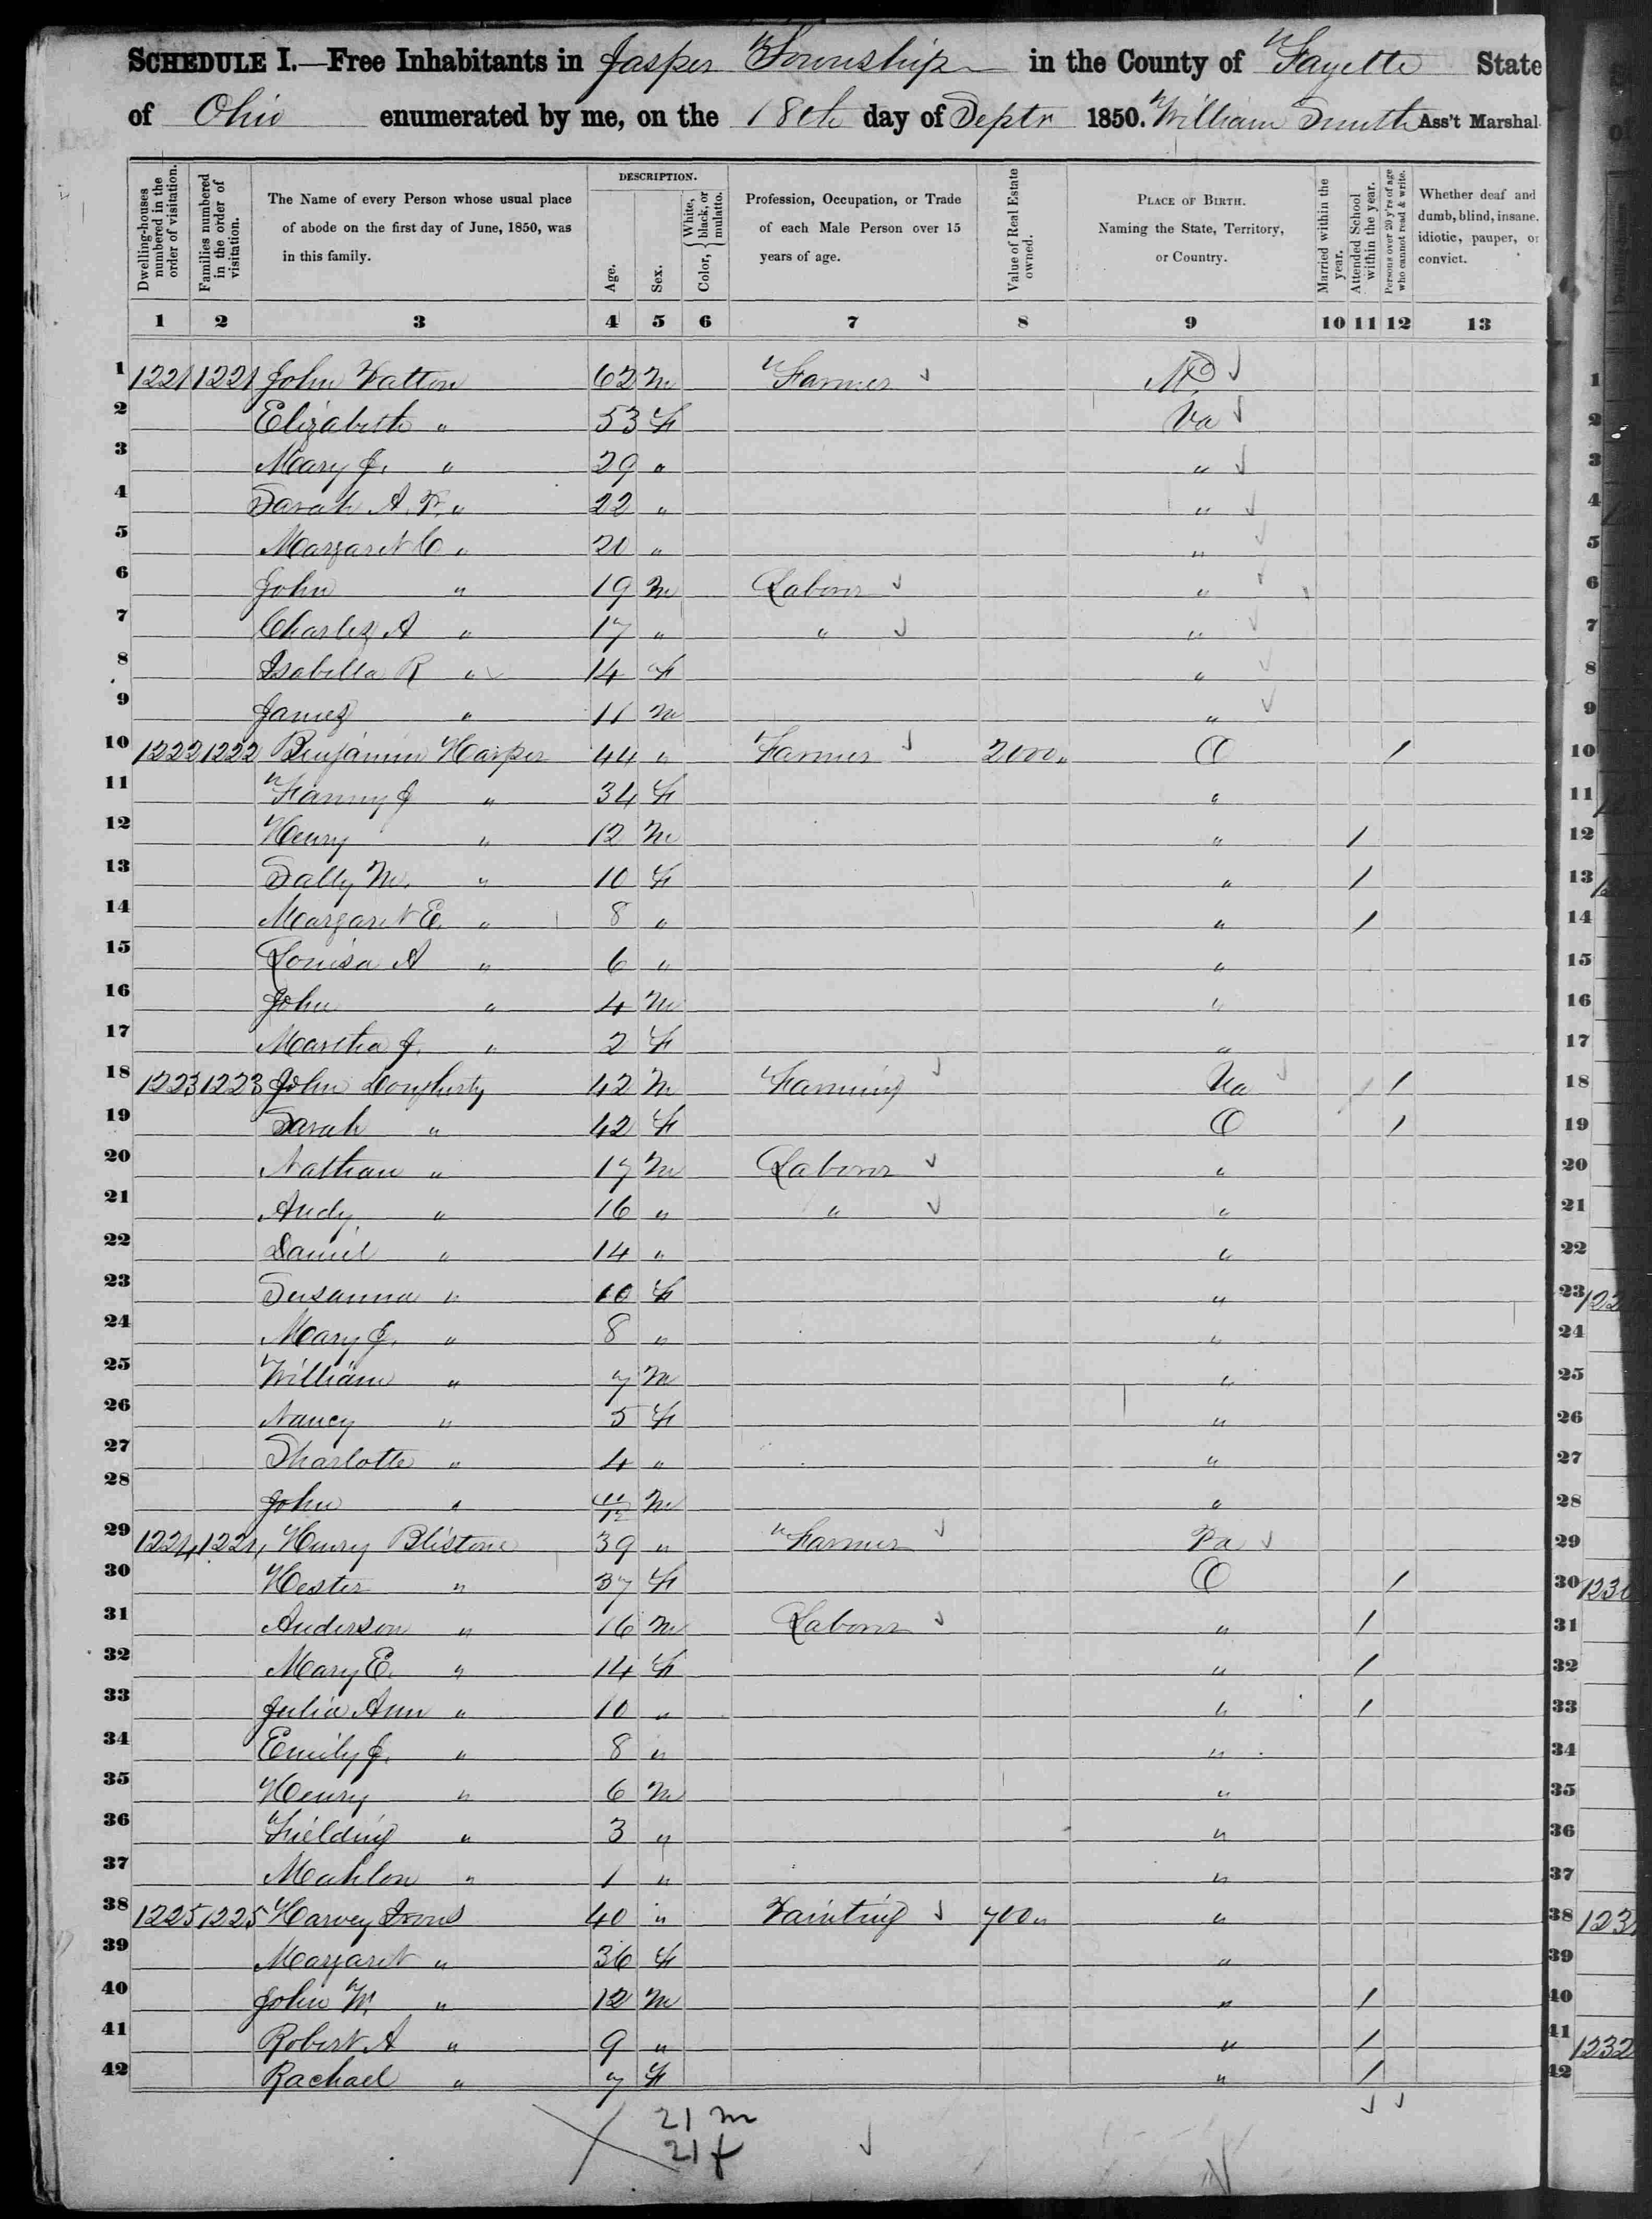 SCHEDULE I.—Free Inhabitants in Jasper Township in the County of Fayette State
of Ohio enumerated by me, on the 18th day of Septr 1850. William Smith Ass't Marshal.
Dwelling-houses numbered in the order of visitation.
Families numbered in the order of visitation.
The Name of every Person whose usual place of abode on the first day of June, 1850, was in this family.
DESCRIPTION.
Age.
Sex.
Color, { White, black, or mulatto.
Profession, Occupation, or Trade of each Male Person over 15 years of age.
Value of Real Estate owned.
PLACE OF BIRTH. Naming the State, Territory, or Country.
Married within the year.
Attended School within the year.
Persons over 20 y'rs of age who cannot read & write.
Whether deaf and dumb, blind, insane, idiotic, pauper, or convict.
1 2 3 4 5 6 7 8 9 10 11 12 13
1 1221 1221 John 62 M Farmer 1
2 Elizabeth " 53 F Va 2
3 Mary J. " 29 " " 3
4 Sarah A. " 22 " " 4
5 Margaret C " 20 " " 5
6 John " 19 M Labourer " 6
7 Charles A " 17 " " " 7
8 Isabella R " 14 F " 8
9 James " 11 M " 9
10 1222 1222 Benjamin Harper 44 " Farmer 2000" O / 10
11 Fanny J " 34 F " 11
12 Henry " 12 M " / 12
13 Sally M. " 10 F " / 13
14 Margaret E. " 8 " " / 14
15 Louisa A " 6 " " 15
16 John " 4 M " 16
17 Martha J. " 2 F " 17
18 1223 1223 John Dougherty 42 M Farming Va / 18
19 Sarah " 42 F O / 19
20 Nathan " 17 M Labourer " 20
21 Andy " 16 " " " 21
22 Daniel " 14 " " 22
23 Susanna " 10 F " 23
24 Mary J. " 8 " " 24
25 William " 7 M " 25
26 Nancy " 5 F " 26
27 Sharlotte " 4 " " 27
28 John " 11/12 M " 28
29 1224 1224 Henry Blistone 39 " Farmer Pa 29
30 Hester " 37 F O / 30
31 Anderson " 16 M Labourer " / 31
32 Mary E. " 14 F " / 32
33 Julia Ann " 10 " " / 33
34 Emily J. " 8 " " 34
35 Henry " 6 M " 35
36 Fielding " 3 " " 36
37 Mahlon " 1 " " 37
38 1225 1225 Harvey Irons 40 " Painting 700" " 38
39 Margaret " 36 F " 39
40 John W. " 12 M " / 40
41 Robert A " 9 " " / 41
42 Rachael " 7 F " / 42
21 m
21 f